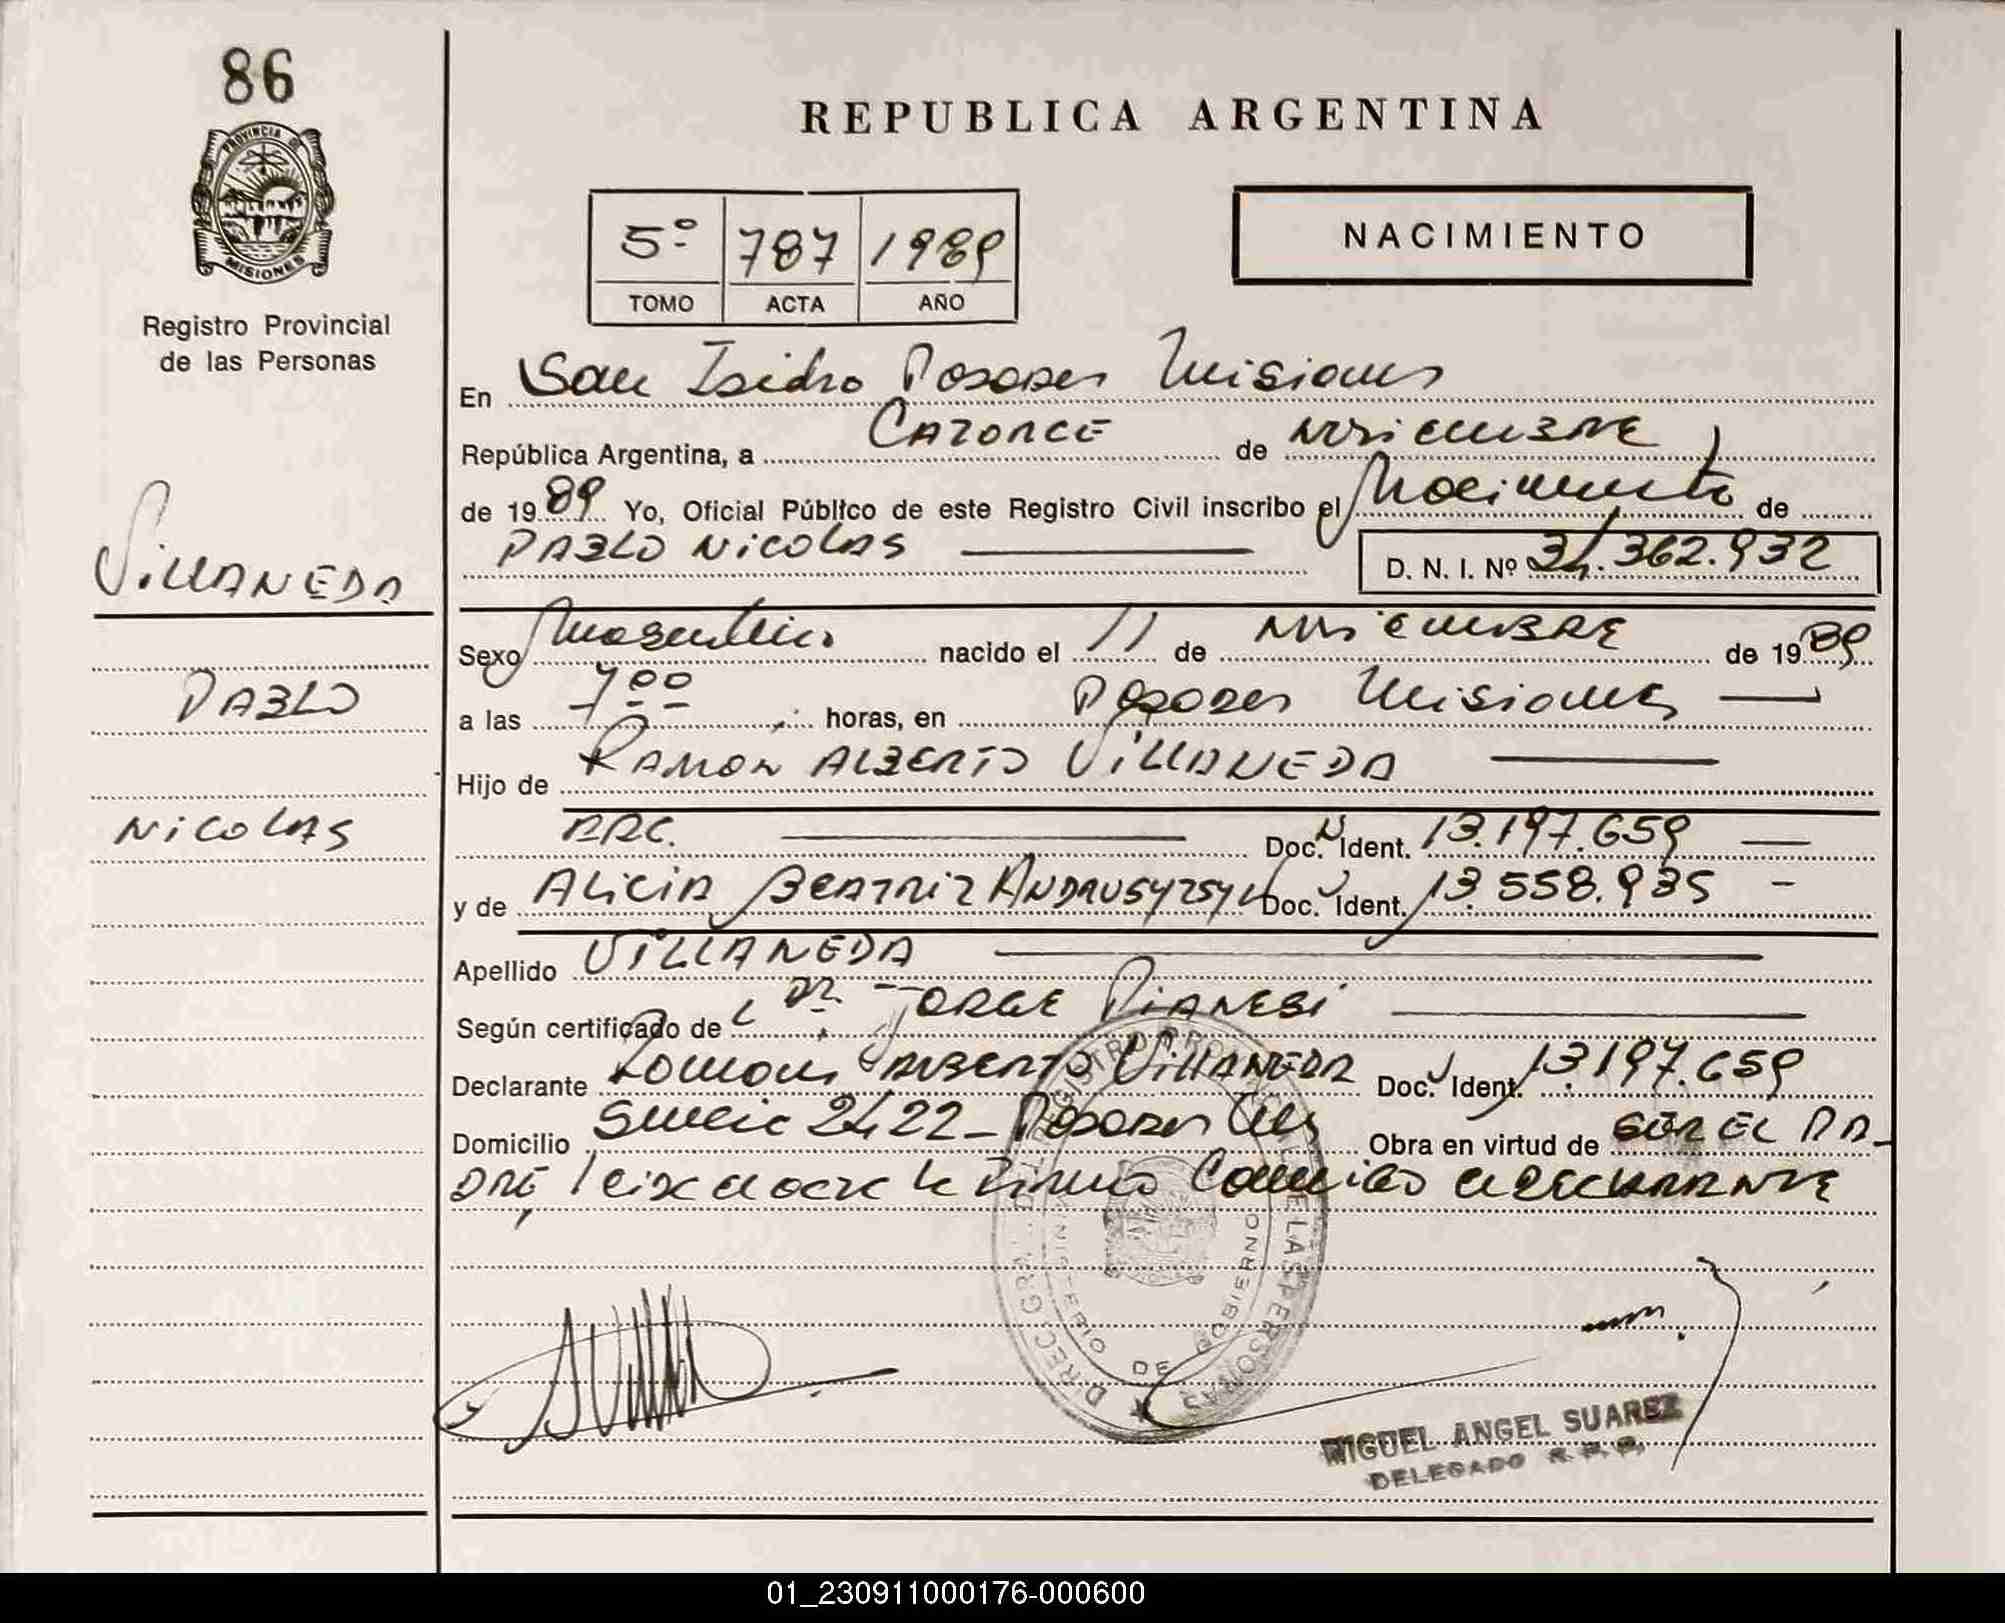 86
PROVINCIA DE
MISIONES
Registro Provincial
de las Personas
VILLANEDA
PABLO
NICOLAS
REPUBLICA ARGENTINA
5º 787 1989
TOMO ACTA AÑO
NACIMIENTO
En San Isidro Posadas Misiones
República Argentina, a CATORCE de NOVIEMBRE
de 1989 Yo, Oficial Público de este Registro Civil inscribo el Nacimiento de
PABLO NICOLAS D. N. I. Nº 34.362.932
Sexo Masculino nacido el 11 de NOVIEMBRE de 1989
a las 7 00 horas, en Posadas Misiones
Hijo de RAMON ALBERTO VILLANEDA
ARG. Doc. Ident. 13.197.659
y de ALICIA BEATRIZ Doc. Ident. 13.558.935
Apellido VILLANEDA
Según certificado de DR. JORGE PIANESI
Declarante Ramon ALBERTO VILLANEDA Doc. Ident. 13.197.659
Domicilio 2422 - Posadas Obra en virtud de SER EL PA-
DRE
DIREC. GRAL. REGISTRO PROVINCIAL DE LAS PERSONAS
MINISTERIO DE GOBIERNO
MIGUEL ANGEL SUAREZ
DELEGADO R.P.P.
01_230911000176-000600